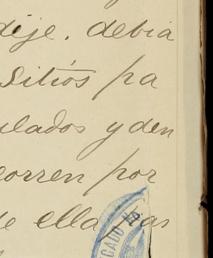 dije, debia
sitios pa
ulados y den
corren por
de ella, pas
CADO